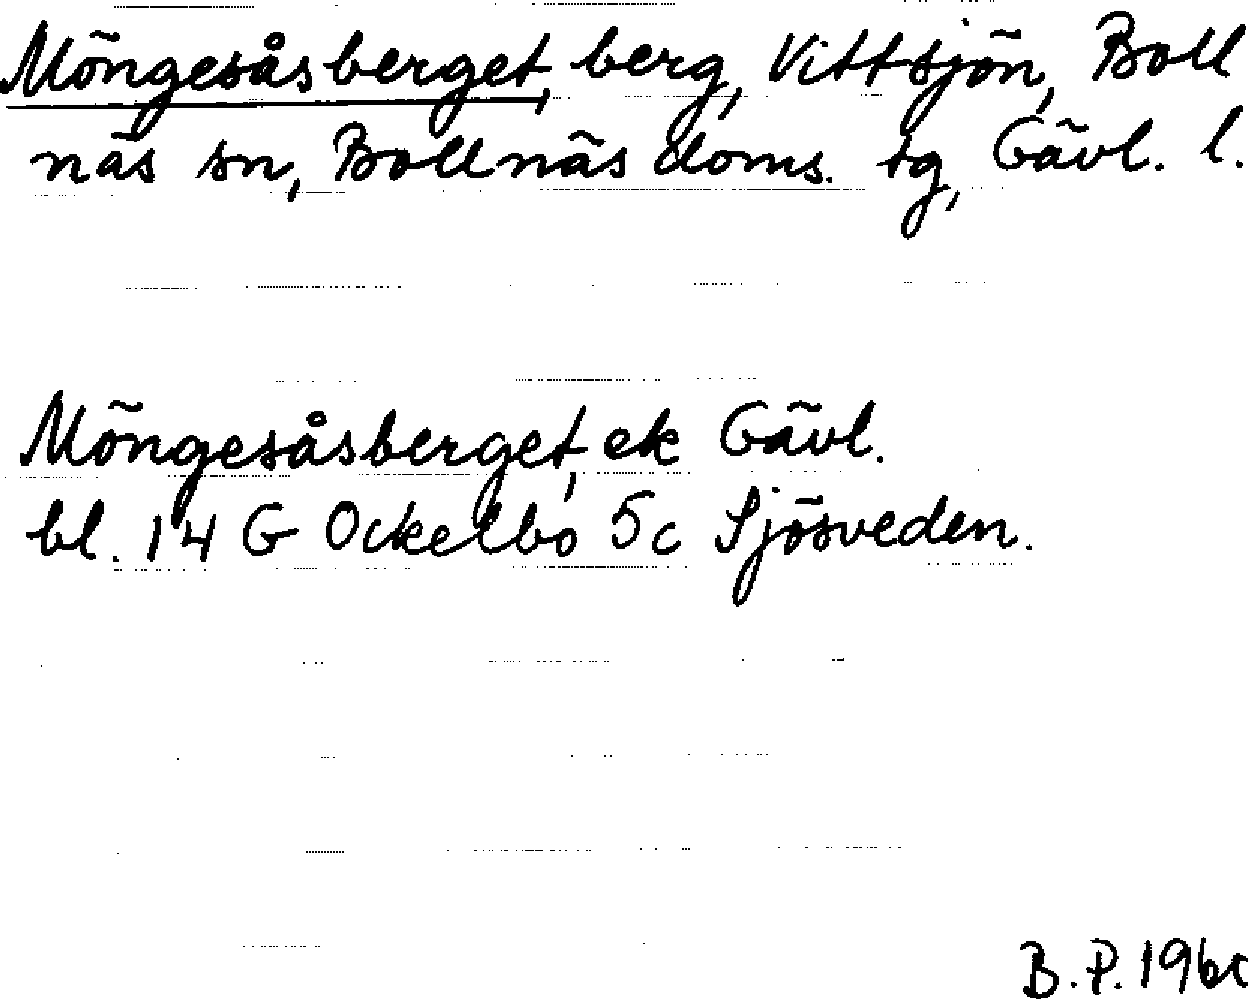 Möngesåsberget, berg, Vittsjön, Boll
näs sn, Bollnäs doms. tg, Gävl. l.
Möngesåsberget, ek Gävl.
bl. 14 G Ockelbo 5c Sjösveden.
B.P.